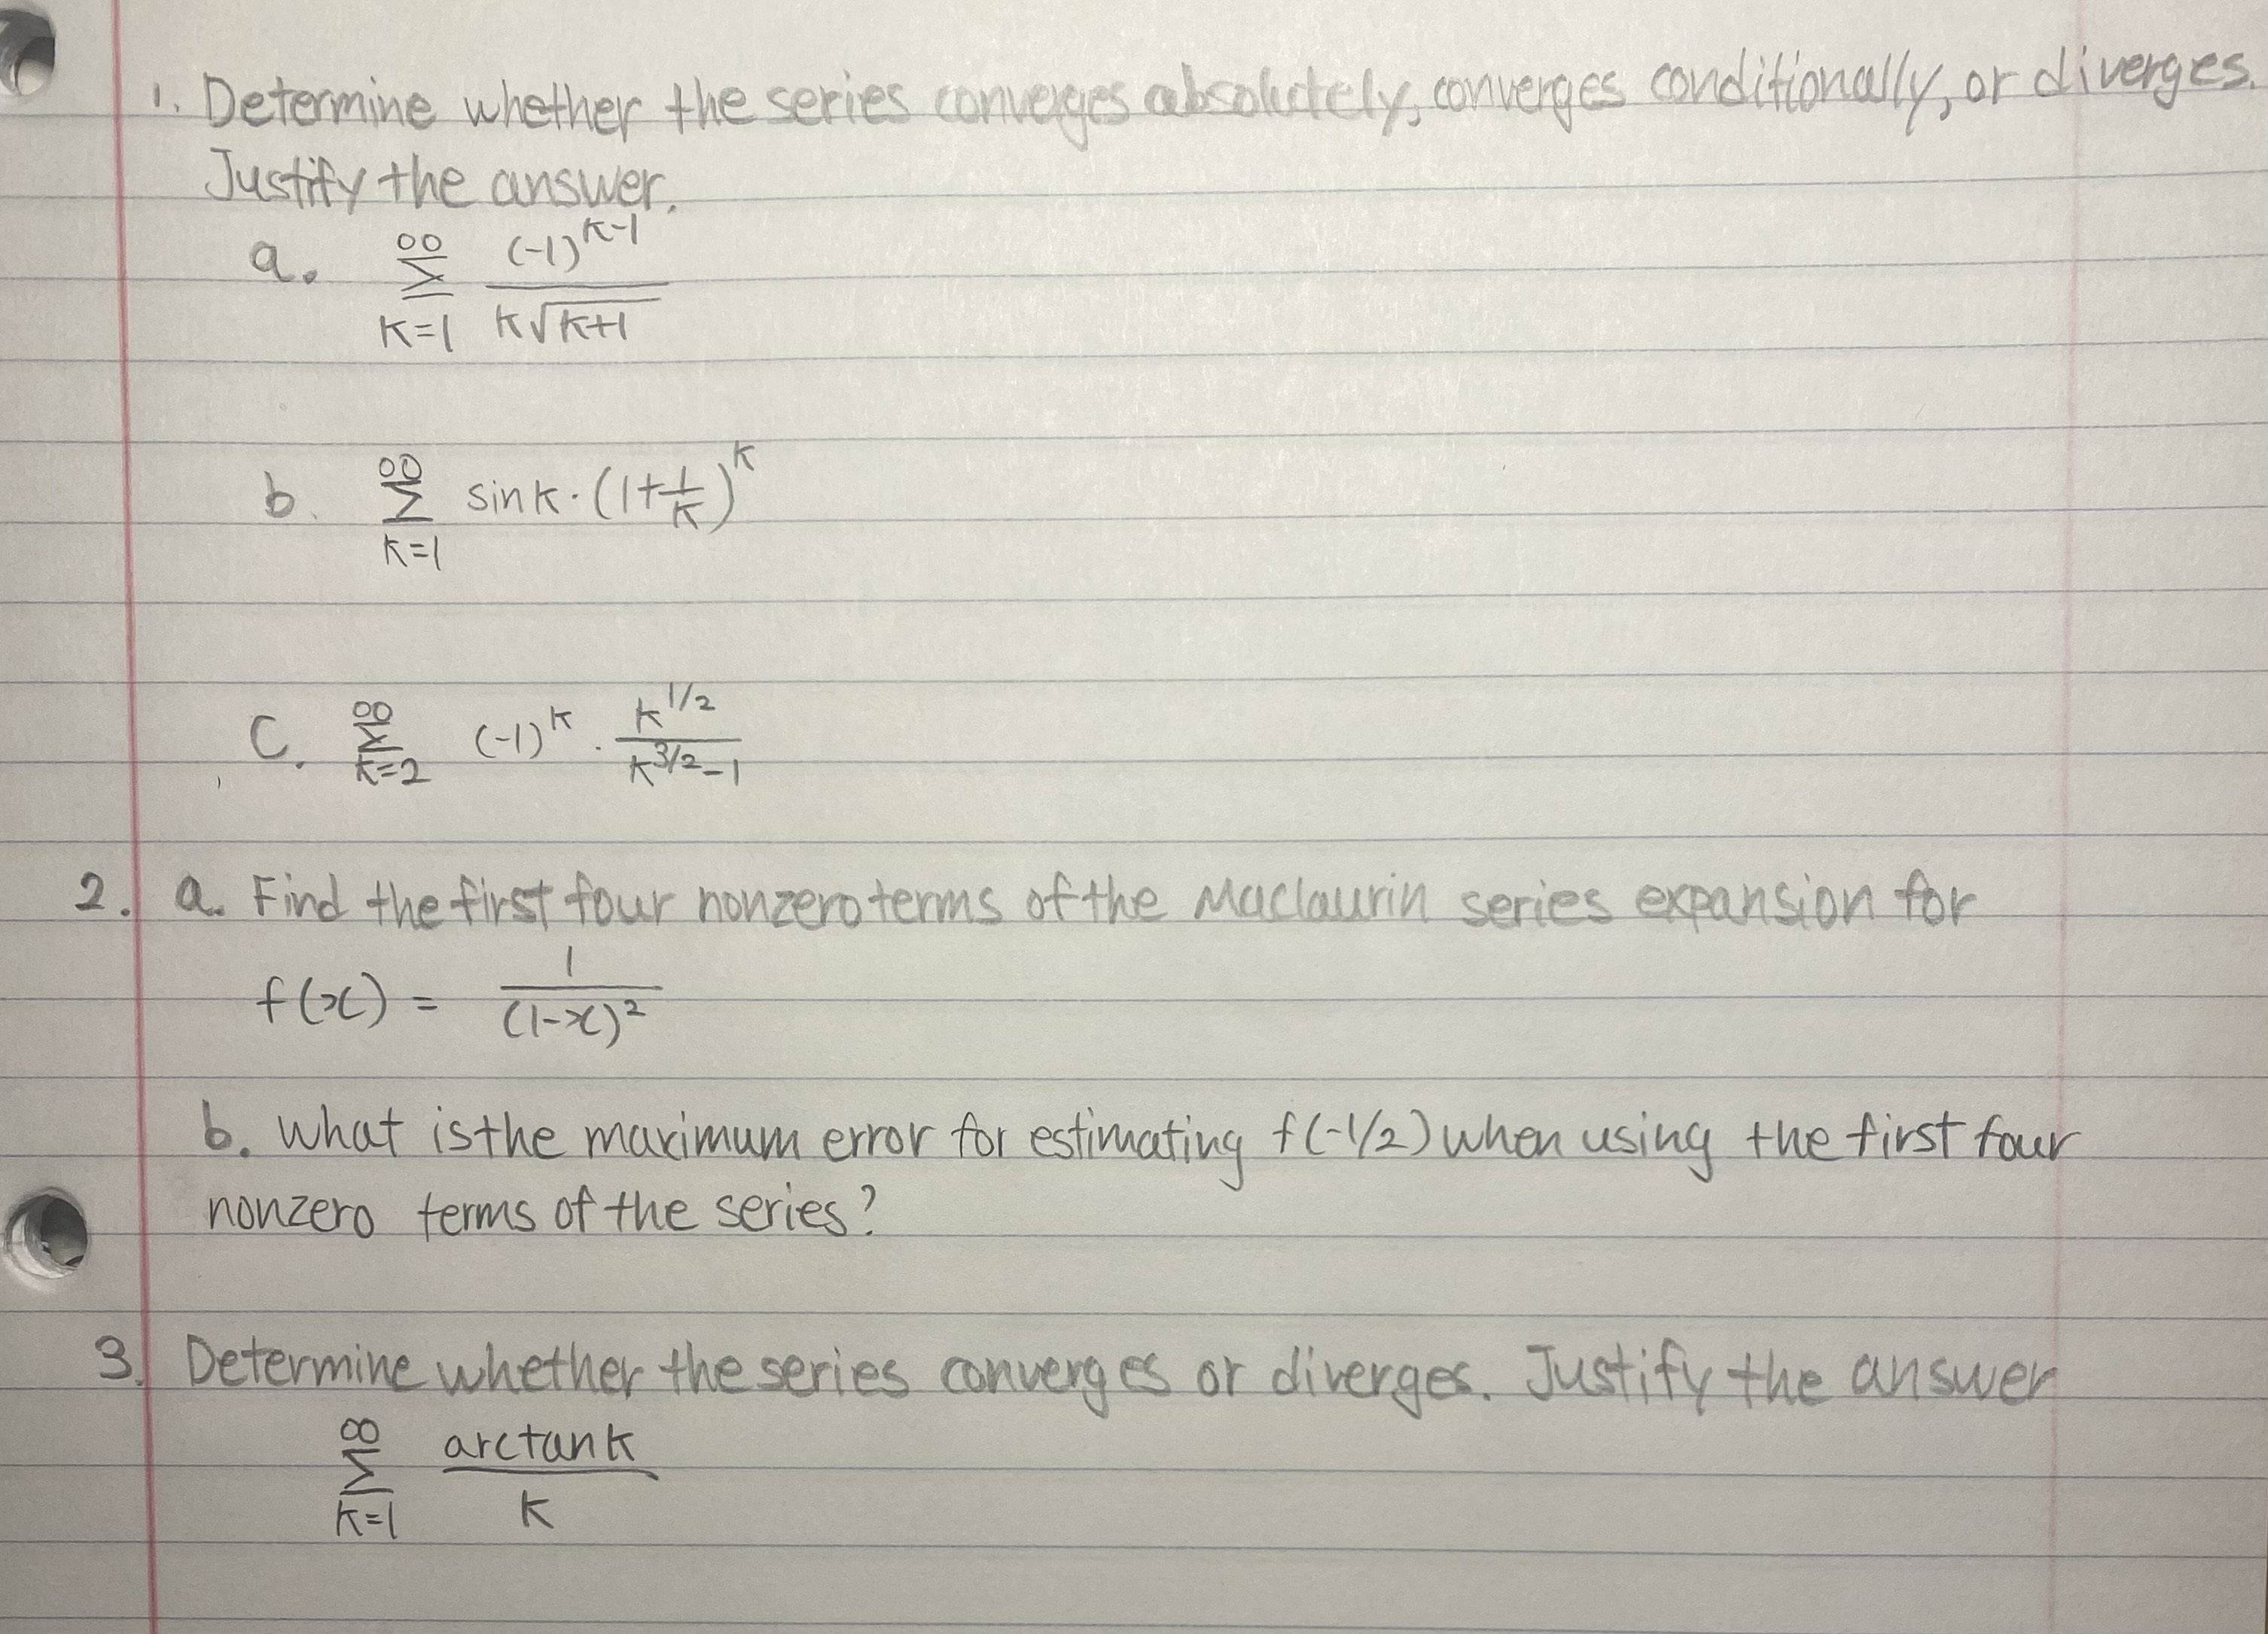 1. Determine whether the series converges absolutely, converges conditionally, or diverges.
Justify the answer.
a. ∞ Σ K=1 (-1)^(K-1) / K√(K+1)
b. ∞ Σ K=1 sin K · (1 + 1/K)^K
C. ∞ Σ K=2 (-1)^K · K^(1/2) / (K^(3/2) - 1)
2. a. Find the first four nonzero terms of the Maclaurin series expansion for
f(x) = 1 / (1-x)²
b. What is the maximum error for estimating f(-1/2) when using the first four
nonzero terms of the series?
3. Determine whether the series converges or diverges. Justify the answer
∞ Σ K=1 arctan K / K